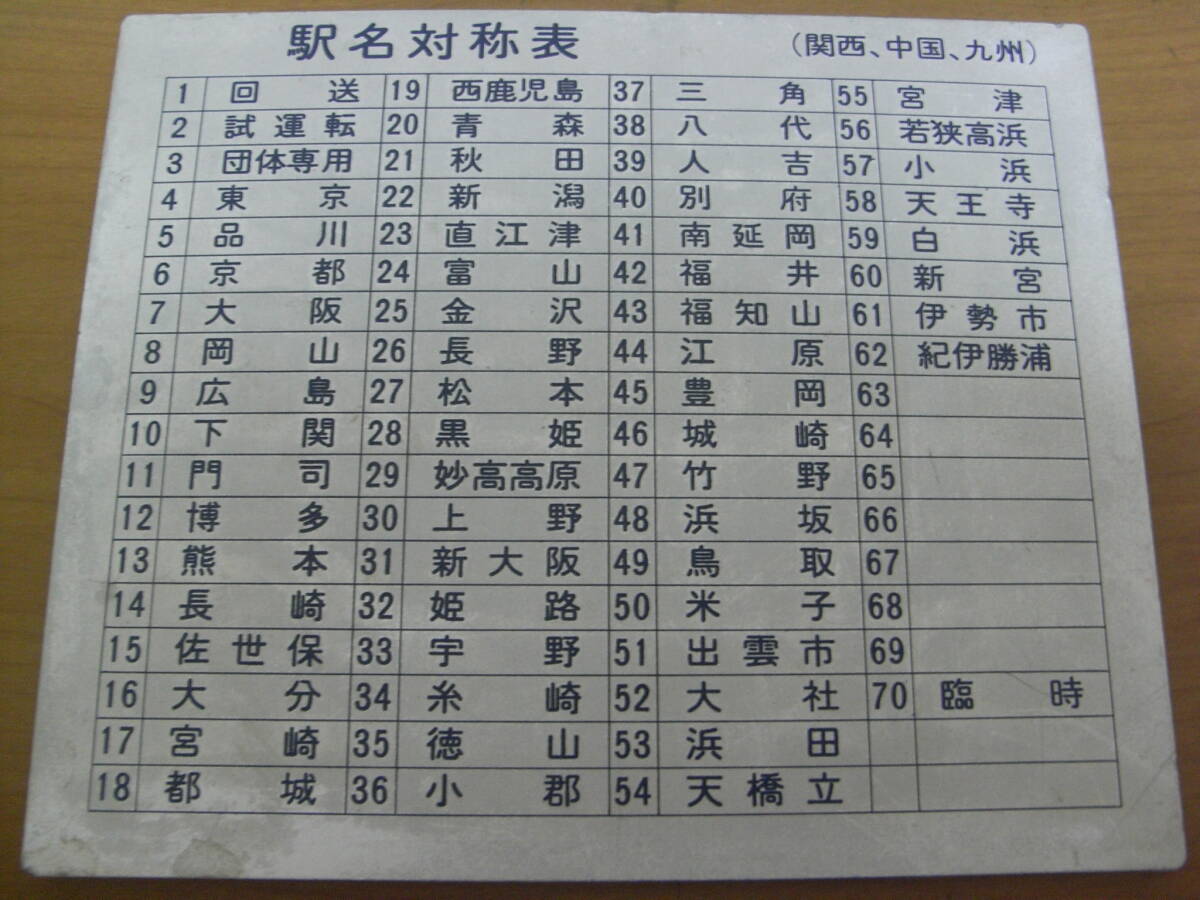 駅名対称表 (関西、中国、九州)
1 回送 19 西鹿児島 37 三角 55 宮津
2 試運転 20 青森 38 八代 56 若狭高浜
3 団体専用 21 秋田 39 人吉 57 小浜
4 東京 22 新潟 40 別府 58 天王寺
5 品川 23 直江津 41 南延岡 59 白浜
6 京都 24 富山 42 福井 60 新宮
7 大阪 25 金沢 43 福知山 61 伊勢市
8 岡山 26 長野 44 江原 62 紀伊勝浦
9 広島 27 松本 45 豊岡 63
10 下関 28 黒姫 46 城崎 64
11 門司 29 妙高高原 47 竹野 65
12 博多 30 上野 48 浜坂 66
13 熊本 31 新大阪 49 鳥取 67
14 長崎 32 姫路 50 米子 68
15 佐世保 33 宇野 51 出雲市 69
16 大分 34 糸崎 52 大社 70 臨時
17 宮崎 35 徳山 53 浜田
18 都城 36 小郡 54 天橋立